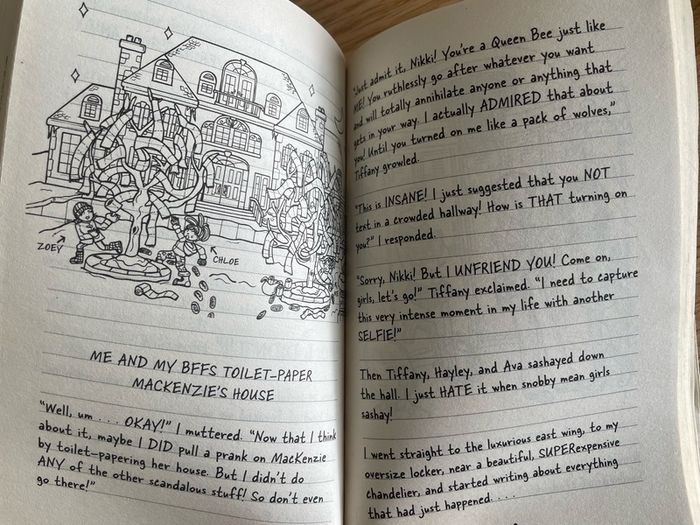 ZOEY
CHLOE
ME AND MY BFFS TOILET-PAPER
MACKENZIE'S HOUSE
"Well, um . . . . OKAY!" I muttered. "Now that I think
about it, maybe I DID pull a prank on MacKenzie
by toilet-papering her house. But I didn't do
ANY of the other scandalous stuff! So don't even
go there!"
"Just admit it, Nikki! You're a Queen Bee just like
ME! You ruthlessly go after whatever you want
and will totally annihilate anyone or anything that
gets in your way. I actually ADMIRED that about
you! Until you turned on me like a pack of wolves,"
Tiffany growled.
"This is INSANE! I just suggested that you NOT
text in a crowded hallway! How is THAT turning on
you?" I responded.
"Sorry, Nikki! But I UNFRIEND YOU! Come on,
girls, let's go!" Tiffany exclaimed. "I need to capture
this very intense moment in my life with another
SELFIE!"
Then Tiffany, Hayley, and Ava sashayed down
the hall. I just HATE it when snobby mean girls
sashay!
I went straight to the luxurious east wing, to my
oversize locker, near a beautiful, SUPERexpensive
chandelier, and started writing about everything
that had just happened. . . .